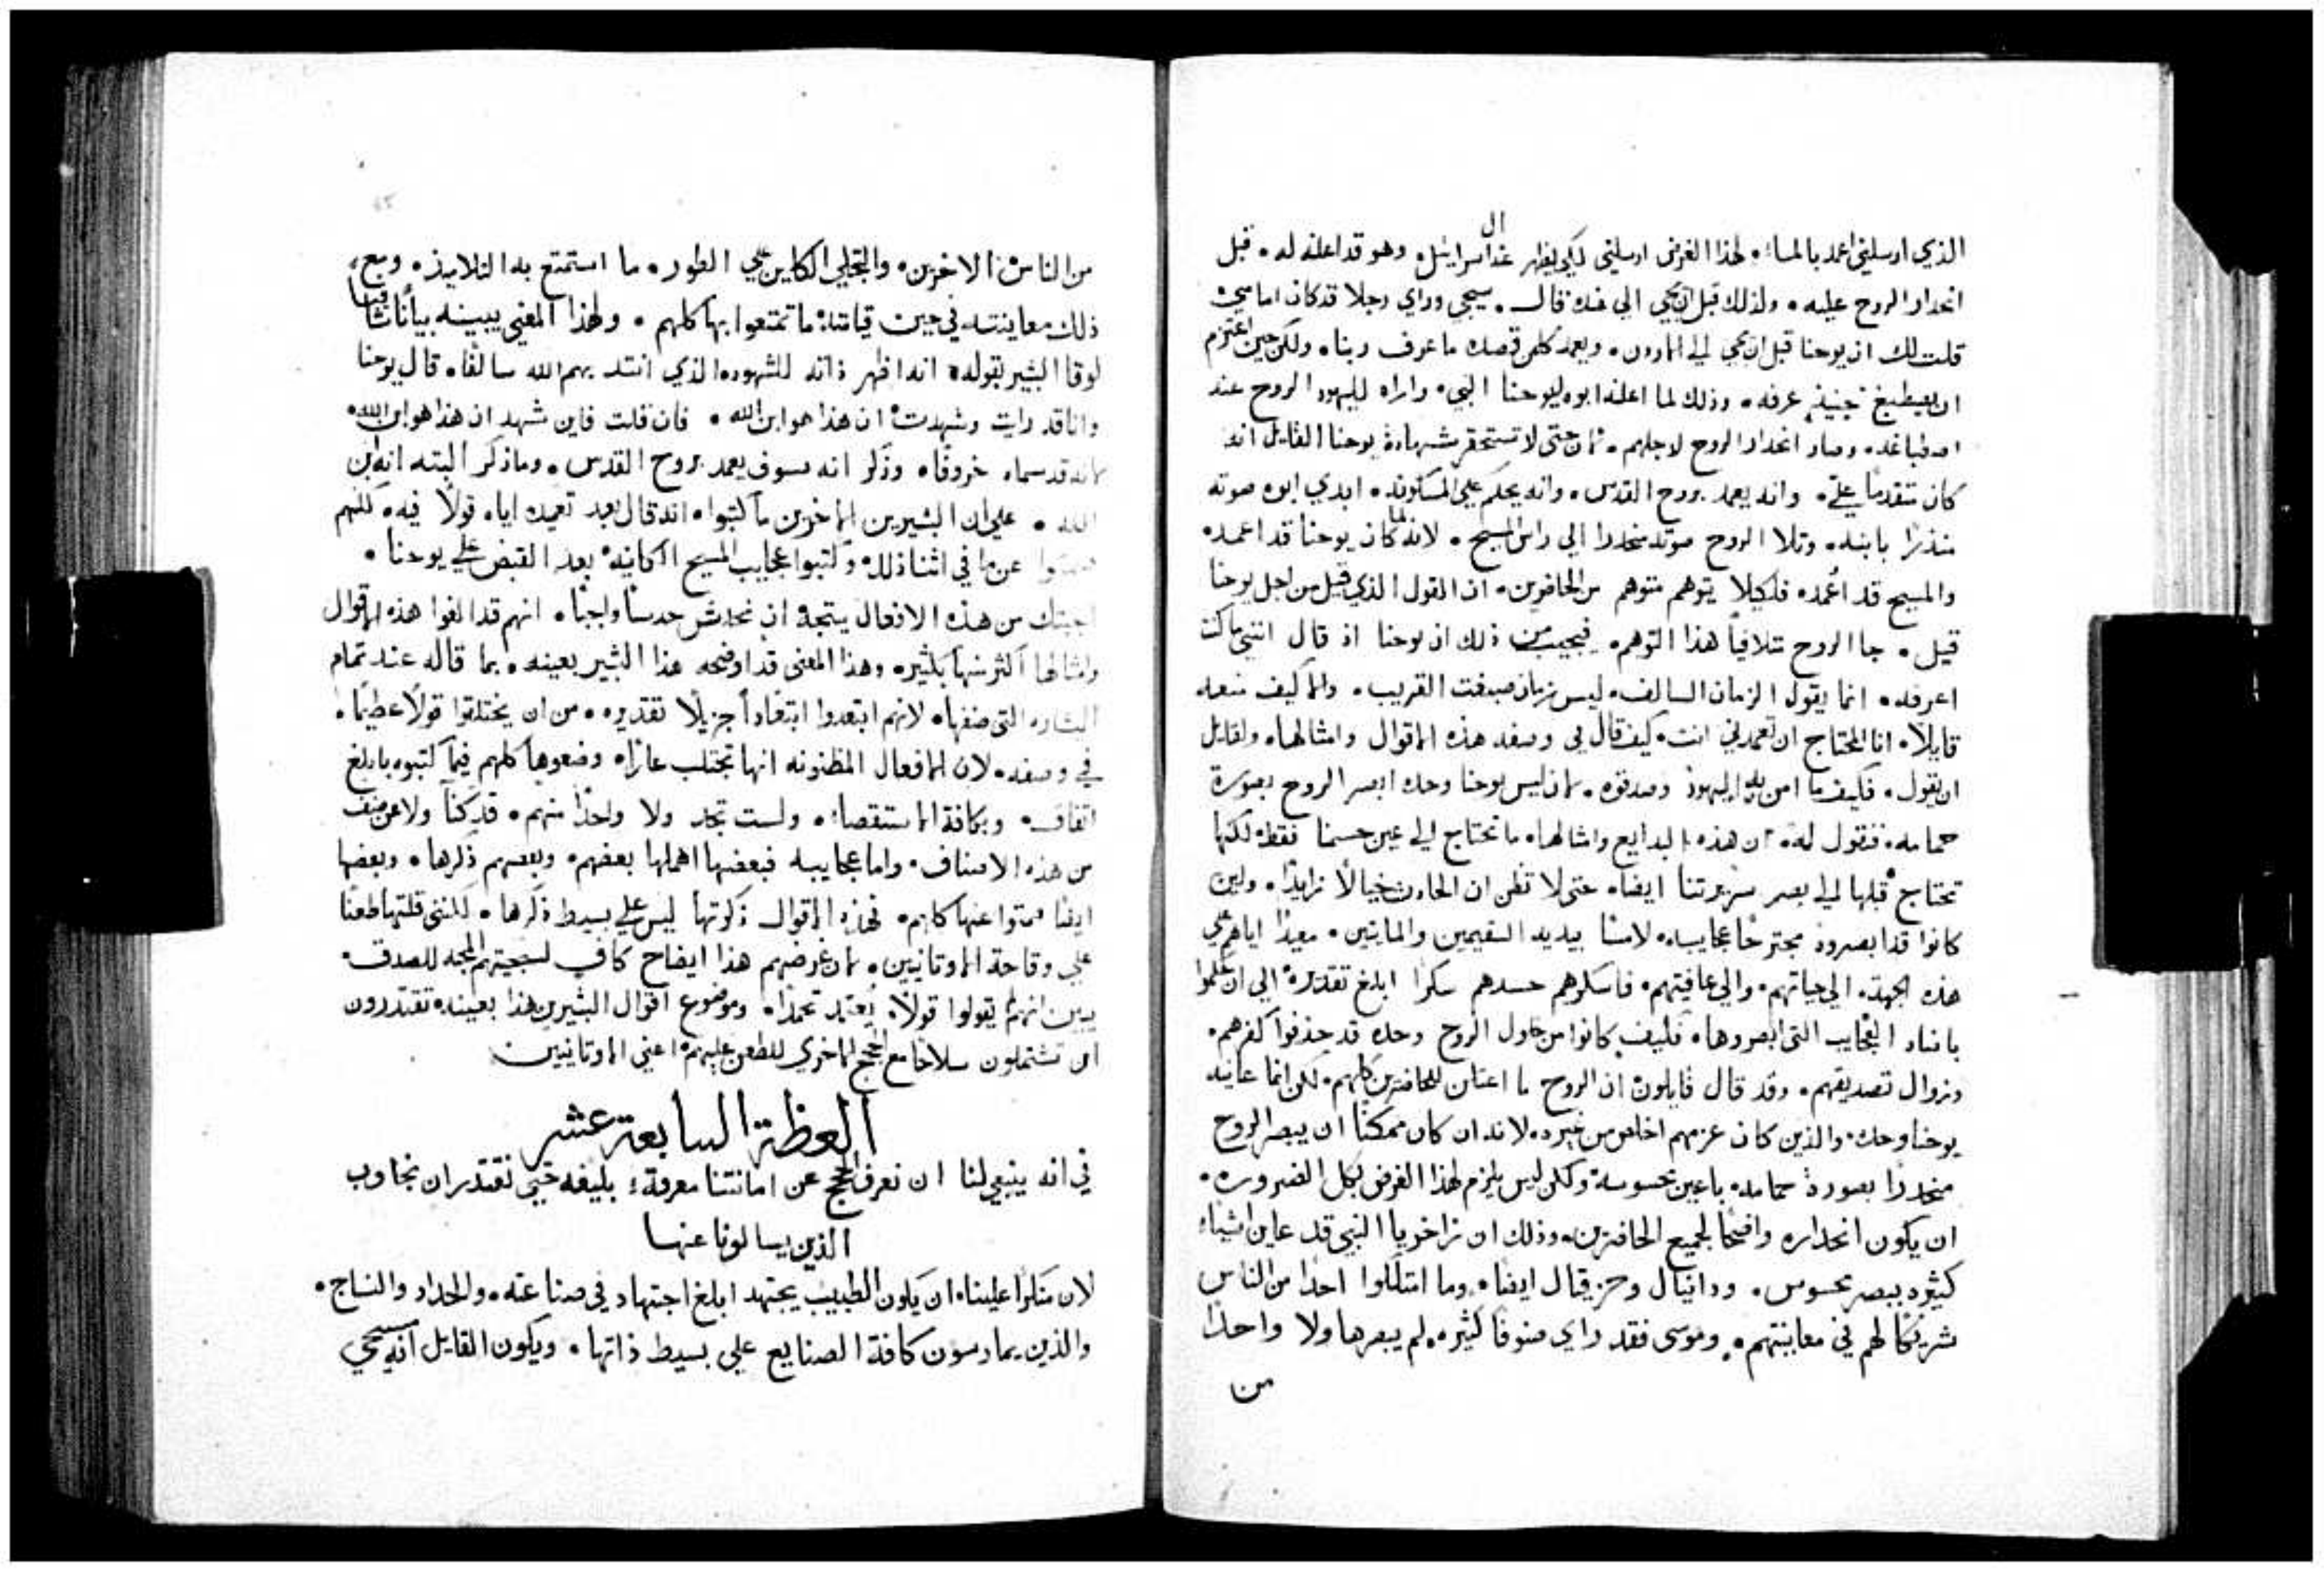 الذي ارسلني اعمد بالماء. لهذا الغرض ارسلني لكي يظهر عند ال اسراييل. وهو قد اعلنه له. قبل
انحدار الروح عليه. ولذلك قبل ان يجي الي عنده قال. سيجي وراي رجلا قد كان امامي
قلت لك ان يوحنا قبل ان يجي الي الاردن. ويعمد كلمن قصده ما عرف ربنا. ولكن حين اعتزم
ان يصطبغ حينيذٍ عرفه. وذلك لما اعلنه ابوه ليوحنا النبي. واراه لليهود الروح عند
اصطباغه. وصار انحدار الروح لاجلهم. لان حتى لا تستحقر شهادة يوحنا القايل انه
كان متقدما علي. وانه يعمد بروح القدس. وانه يحكم علي المسكونه. ابدي ابوه صوته
منذرا بابنه. وتلا الروح صوته منحدرا الي راس المسيح. لانه لما كان يوحنا قد اعمد.
والمسيح قد اعُمد. فلكيلا يتوهم متوهم من الحاضرين. ان القول الذي قيل من اجل يوحنا
قيل. جا الروح متلافياً هذا التوهم. فيجيب من ذلك ان يوحنا اذ قال انني ما كنت
اعرفه. انما يقول الزمان السالف. ليس زمان صبغت القريب. والا كيف منعه
قايلاً. انا المحتاج ان تعمدني انت. كيف قال لي وصفه هذه الاقوال وامثالها. ولقايل
ان يقول. فكيف ما امن به اليهود وصدقوه. لان ليس يوحنا وحده ابصر الروح بصورة
حمامه. فنقول له. ان هذه البدايع وامثالها. ما تحتاج الي عين حسنا فقط. لكنها
تحتاج قبلها الي بصر سريرتنا ايضا. حتى لا تظن ان الحادث خيالاً زايدا. ولين
كانوا قد ابصروه مجترحا عجايبه. لامسا بيديه السقيمين والمايتين. معيداً اياهم علي
هذه الجهة. الي حياتهم. والي عافيتهم. فاسكرهم حسدهم سكرا ابلغ تقديره. الي ان حكموا
باضداد العجايب التي ابصروها. فكيف كانوا من حلول الروح وحده قد حذفوا كفرهم.
وزوال تصديقهم. وقد قال قايلون ان الروح ما اعتلن للحاضرين كلهم. لكن انما عاينه
يوحنا وحده. والذين كان عزمهم اخلص من غيره. لانه ان كان ممكنا ان يبصر الروح
منحدرا بصورة حمامه. باعين محسوسة. ولكن ليس يلزم لهذا الغرض بكل الضروره.
ان يكون انحداره واضحا لجميع الحاضرين. وذلك ان زاخريا النبي قد عاين اشياء
كثيره ببصر محسوس. ودانيال وحزقيال ايضا. وما امتلكوا احدا من الناس
شريكا لهم في معاينتهم. وموسى فقد راي صنوفا كثيره. لم يبصرها ولا واحدا
من
من الناس الاخرين. والتجلي الكاين علي الطور. ما استمتع به التلاميذ. ومع
ذلك معاينته في حين قيامته ما تمتعوا بها كلهم. ولهذا المعني يبينه بيانا شافيا
لوقا البشير بقوله. انه اظهر ذاته للشهود الذي انتد بهم الله سالفا. قال يوحنا
وانا قد رايت وشهدت ان هذا هو ابن الله. فان قلت فاين شهد ان هذا هو ابن الله.
لانه قد سماه خروفا. وذكر انه سوف يعمد بروح القدس. وما ذكر البته انه ابن
الله. علي ان البشيرين الاخرين ما كتبوا. انه قال بعد تعميده اياه قولا فيه. لكنهم
صمتوا عن ما في اثنا ذلك. وكتبوا عجايب المسيح الكاينه. بعد القبض علي يوحنا.
اجبتك من هذه الافعال يتجه ان نحدس حدسا واجبا. انهم قد الغوا هذه الاقوال
وامثالها اكثر منها بكثير. وهذا المعنى قد اوضحه هذا البشير بعينه. بما قاله عند تمام
البشاره التى صنفها. لانهم ابتعدوا ابتعاداً جزيلا تقديره. من ان يختلقوا قولا عظيما.
في وصفه. لان الافعال المظنونه انها تجتلب عارا. وضعوها كلهم فيما كتبوه بابلغ
اتفاق. وبكافة الاستقصاء. ولست تجد ولا واحدا منهم. قد كنا ولا عن صنف
من هذه الاصناف. واما عجايبه فبعضها اهملها بعضهم. وبعضهم ذكرها. وبعضها
ايضا صمتوا عنها كلهم. فهذه الاقوال ذكرتها ليس علي بسيط ذكرها. لكنني قلتها طعنا
علي وقاحة الاوتانيين. لان غرضهم هذا ايضاح كاف لسجيتهم المحبه للصدق.
يبين انهم لم يقولوا قولا. يُعتد تحمدا. وموضوع اقوال البشيرين هذا بعينه. تقتدرون
ان تشتملون سلاحا مع الحجج الاخري للطعن عليهم. اعني الاوتانيين
العظة السابعة عشر
في انه ينبغي لنا ان نعرف الحجج عن امانتنا معرفة بليغه حتي نقتدر ان نجاوب
الذين يسالونا عنها
لان منكرا علينا. ان يكون الطبيب يجتهد ابلغ اجتهاد في صناعته. والحداد والنساج.
والذين يمارسون كافة الصنايع علي بسيط ذاتها. ويكون القايل انه مسيحي